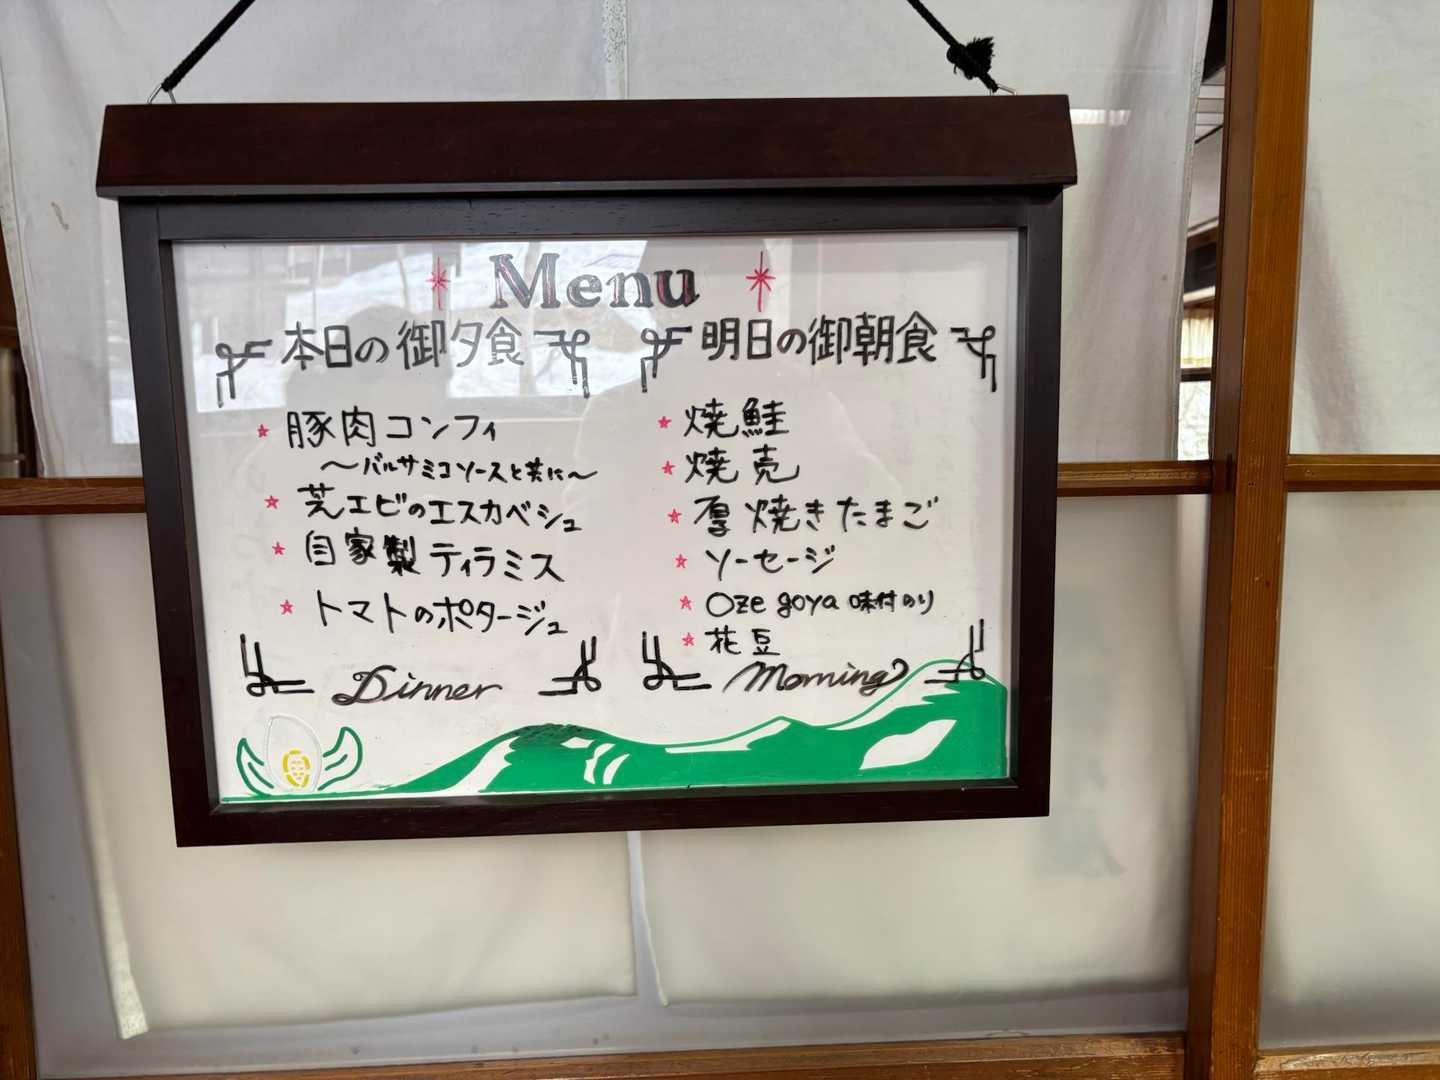 Menu
本日の御夕食
豚肉コンフィ
〜バルサミコソースと共に〜
芝エビのエスカベシュ
自家製ティラミス
トマトのポタージュ
Dinner
明日の御朝食
焼鮭
焼売
厚焼きたまご
ソーセージ
Oze goya 味付のり
花豆
Morning